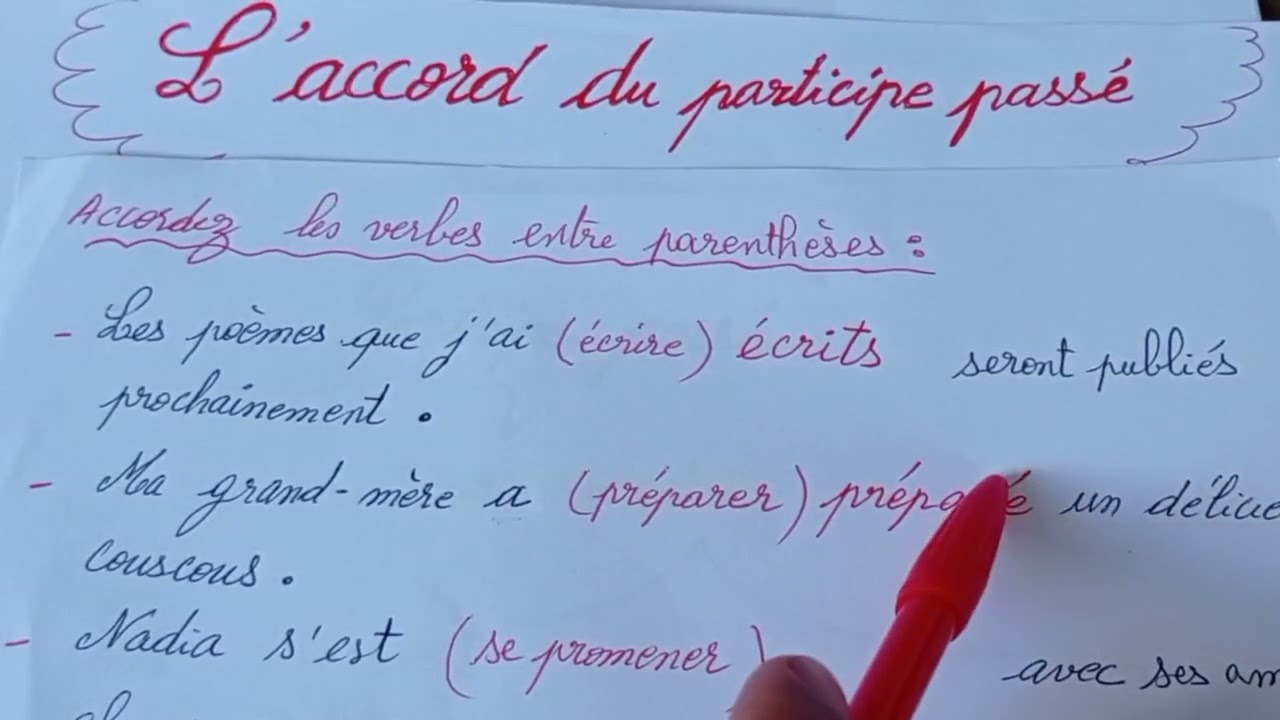 L'accord du participe passé
Accordez les verbes entre parenthèses :
- Les poèmes que j'ai (écrire) écrits seront publiés
prochainement.
- Ma grand-mère a (préparer) un
couscous.
- Nadia s'est (se promener) avec ses